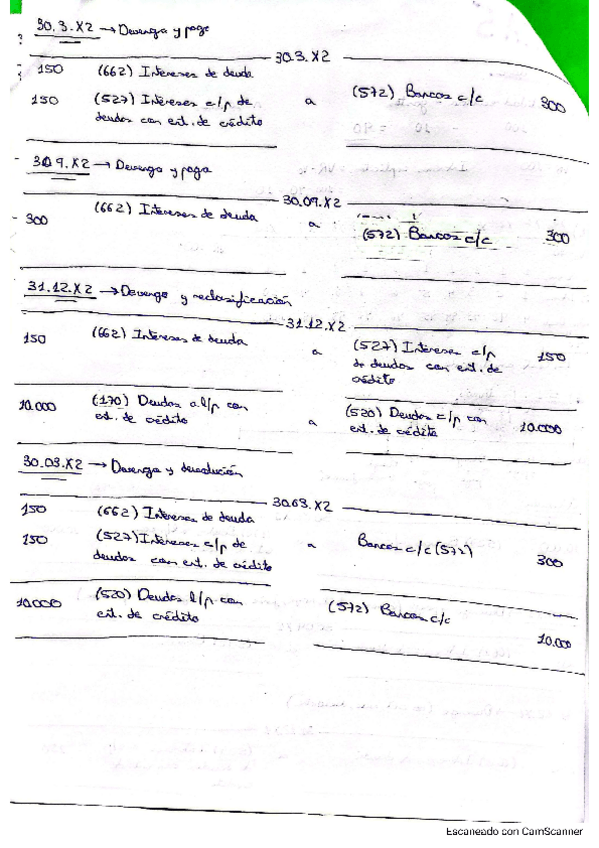 30.3.X2 → Devenga y pago
30.3.X2
150 (662) Intereses de deuda
150 (527) Intereses c/p de a (572) Bancos c/c 300
deudas con ent. de crédito
30.9.X2 → Devengo y pago
30.09.X2
300 (662) Intereses de deuda a (572) Bancos c/c 300
31.12.X2 → Devengo y reclasificación
31.12.X2
150 (662) Intereses de deuda a (527) Intereses c/p 150
de deudas con ent. de
crédito
10.000 (170) Deudas a l/p con a (520) Deudas c/p con 10.000
ent. de crédito ent. de crédito
30.03.X2 → Devenga y devolución
30.03.X2
150 (662) Intereses de deuda
150 (527) Intereses c/p de a Bancos c/c (572) 300
deudas con ent. de crédito
10.000 (520) Deudas l/p con (572) Bancos c/c 10.000
ent. de crédito
Escaneado con CamScanner